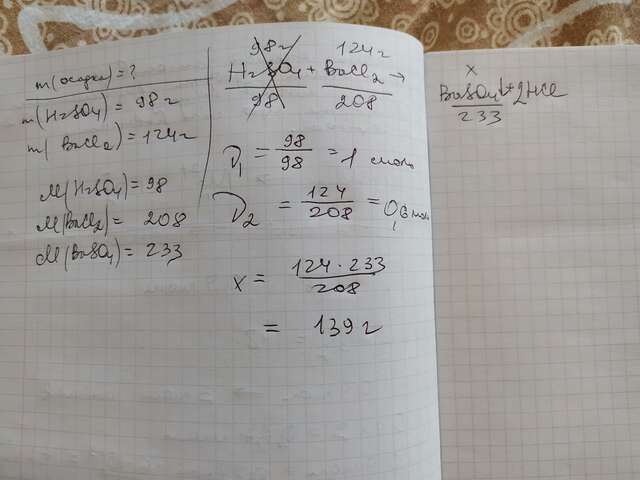 m(осадка) = ?
m(H2SO4) = 98 г
m(BaCl2) = 124 г
M(H2SO4) = 98
M(BaCl2) = 208
M(BaSO4) = 233
98 г 124 г x
H2SO4 + BaCl2 → BaSO4↓ + 2HCl
98 208 233
ν1 = 98/98 = 1 моль
ν2 = 124/208 = 0,6 моль
x = 124 · 233/208
= 139 г